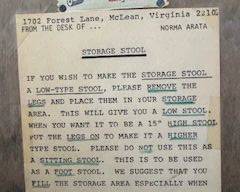 1702 Forest Lane, McLean, Virginia 22101
FROM THE DESK OF ... NORMA ARATA
STORAGE STOOL
IF YOU WISH TO MAKE THE STORAGE STOOL
A LOW-TYPE STOOL, PLEASE REMOVE THE
LEGS AND PLACE THEM IN YOUR STORAGE
AREA. THIS WILL GIVE YOU A LOW STOOL.
WHEN YOU WANT IT TO BE A 15" HIGH STOOL
PUT THE LEGS ON TO MAKE IT A HIGHER
TYPE STOOL. PLEASE DO NOT USE THIS AS
A SITTING STOOL. THIS IS TO BE USED
AS A FOOT STOOL. WE SUGGEST THAT YOU
FILL THE STORAGE AREA ESPECIALLY WHEN